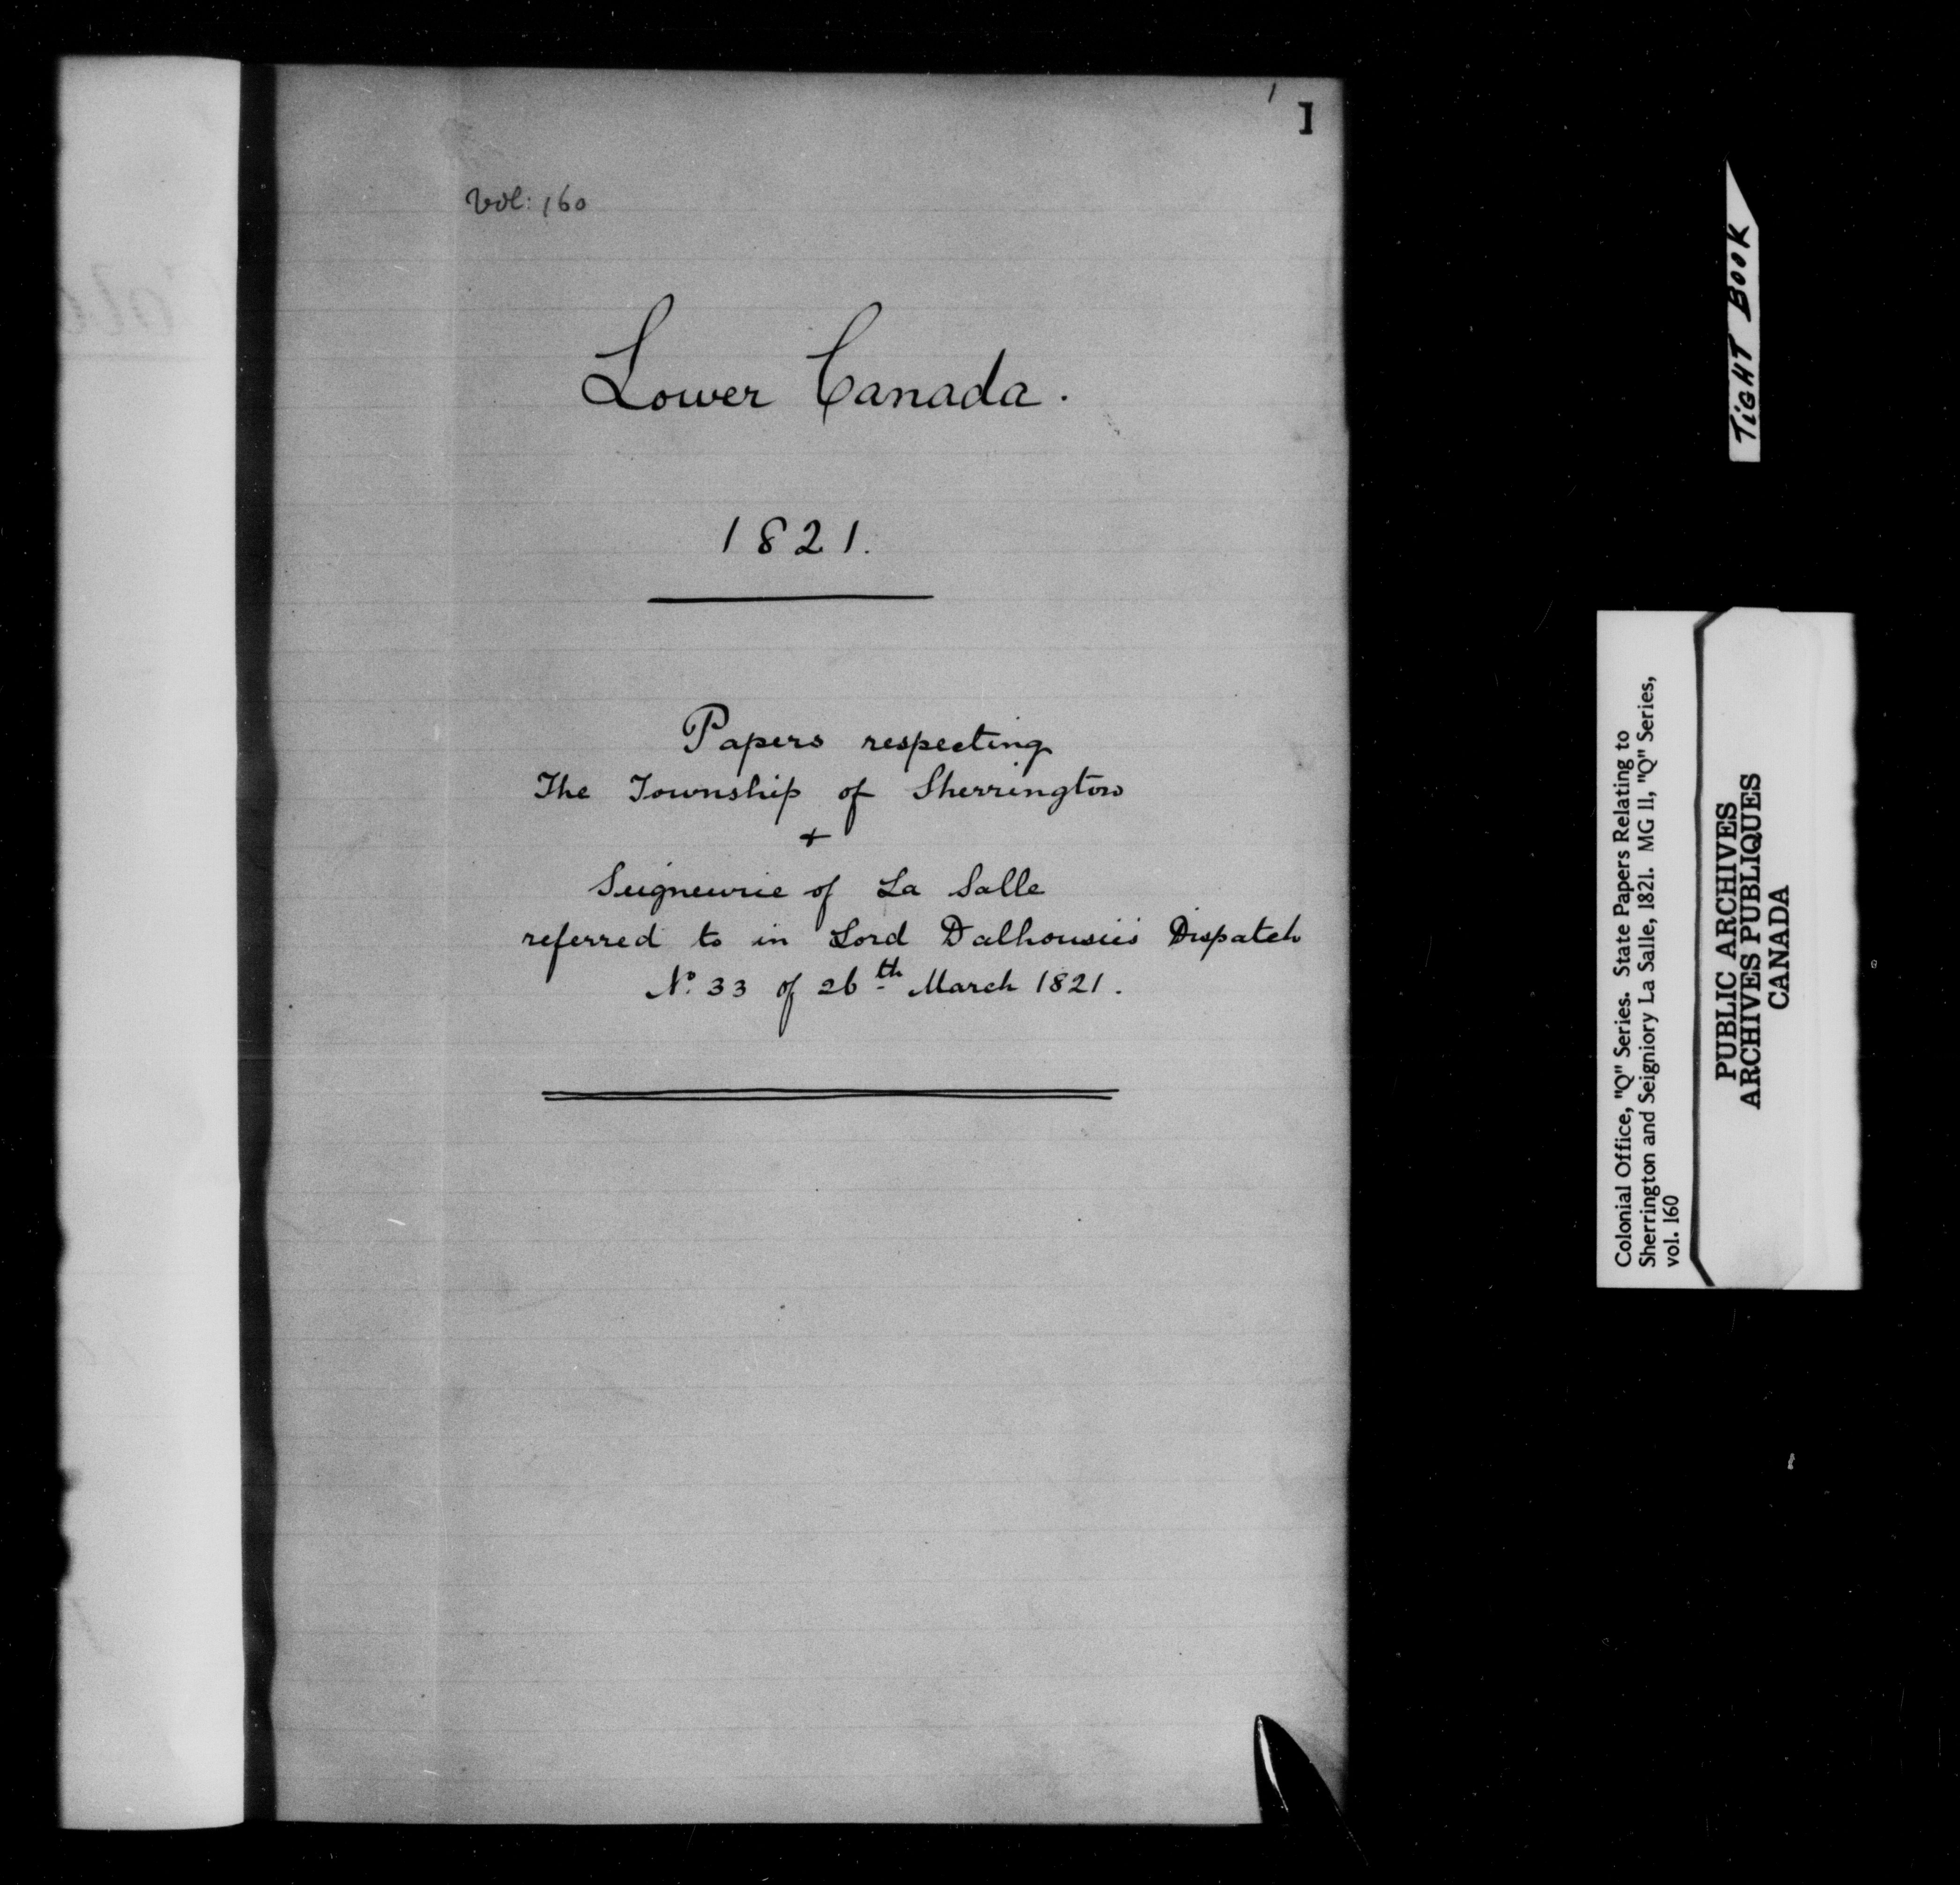 1
I
Vol: 160
Lower Canada.
1821.
Papers respecting
The Township of Sherrington
+
Seigneurie of La Salle
referred to in Lord Dalhousie's Dispatch
No. 33 of 26th March 1821.
TiGHT BOOK
Colonial Office, "Q" Series. State Papers Relating to
Sherrington and Seigniory La Salle, 1821. MG 11, "Q" Series,
vol. 160
PUBLIC ARCHIVES
ARCHIVES PUBLIQUES
CANADA